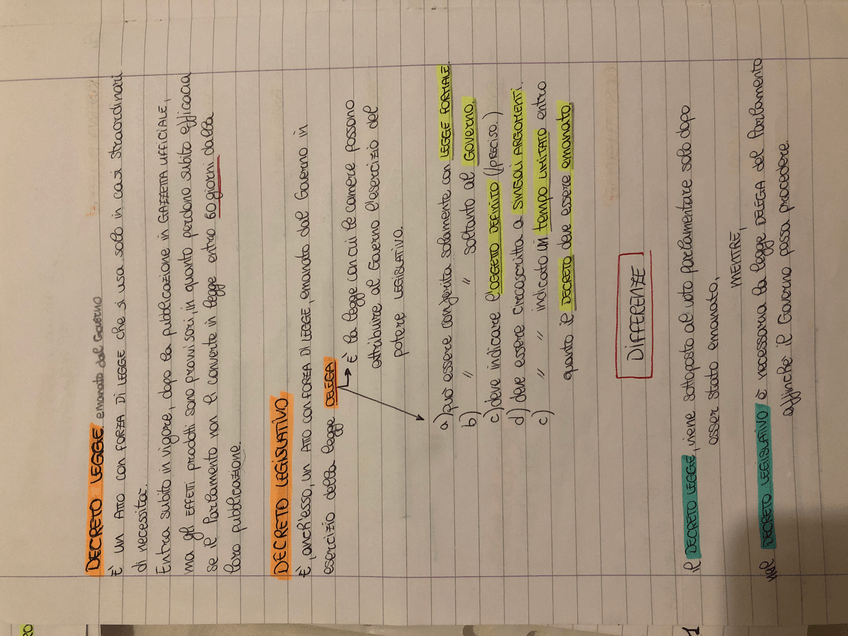 DECRETO LEGGE emanato dal Governo
È UN ATTO CON FORZA DI LEGGE che si usa solo in casi straordinari
di necessità.
Entra subito in vigore, dopo la pubblicazione in GAZZETTA UFFICIALE,
ma gli EFFETI prodotti sono provvisori, in quanto perdono subito efficacia
se il Parlamento non li converte in legge entro 60 giorni dalla
loro pubblicazione.
DECRETO LEGISLATIVO
È, anch'esso, un ATTO CON FORZA DI LEGGE, emanato dal Governo in
esercizio della legge DELEGA
È la legge con cui le camere possono
attribuire al Governo l'esercizio del
potere LEGISLATIVO.
a) può essere conferita solamente con LEGGE FORMALE.
b) " " soltanto al GOVERNO.
c) deve indicare l'OGGETTO DEFINITO (PRECISO.)
d) deve essere circoscritta a SINGOLI ARGOMENTI.
c) " " indicato un tempo LIMITATO entro
quanto il DECRETO deve essere emanato.
DIFFERENZE
il DECRETO LEGGE, viene sottoposto al voto parlamentare solo dopo
esser stato emanato,
MENTRE,
nel DECRETO LEGISLATIVO è necessaria la legge DELEGA del Parlamento
affinchè il Governo possa procedere
RO
1